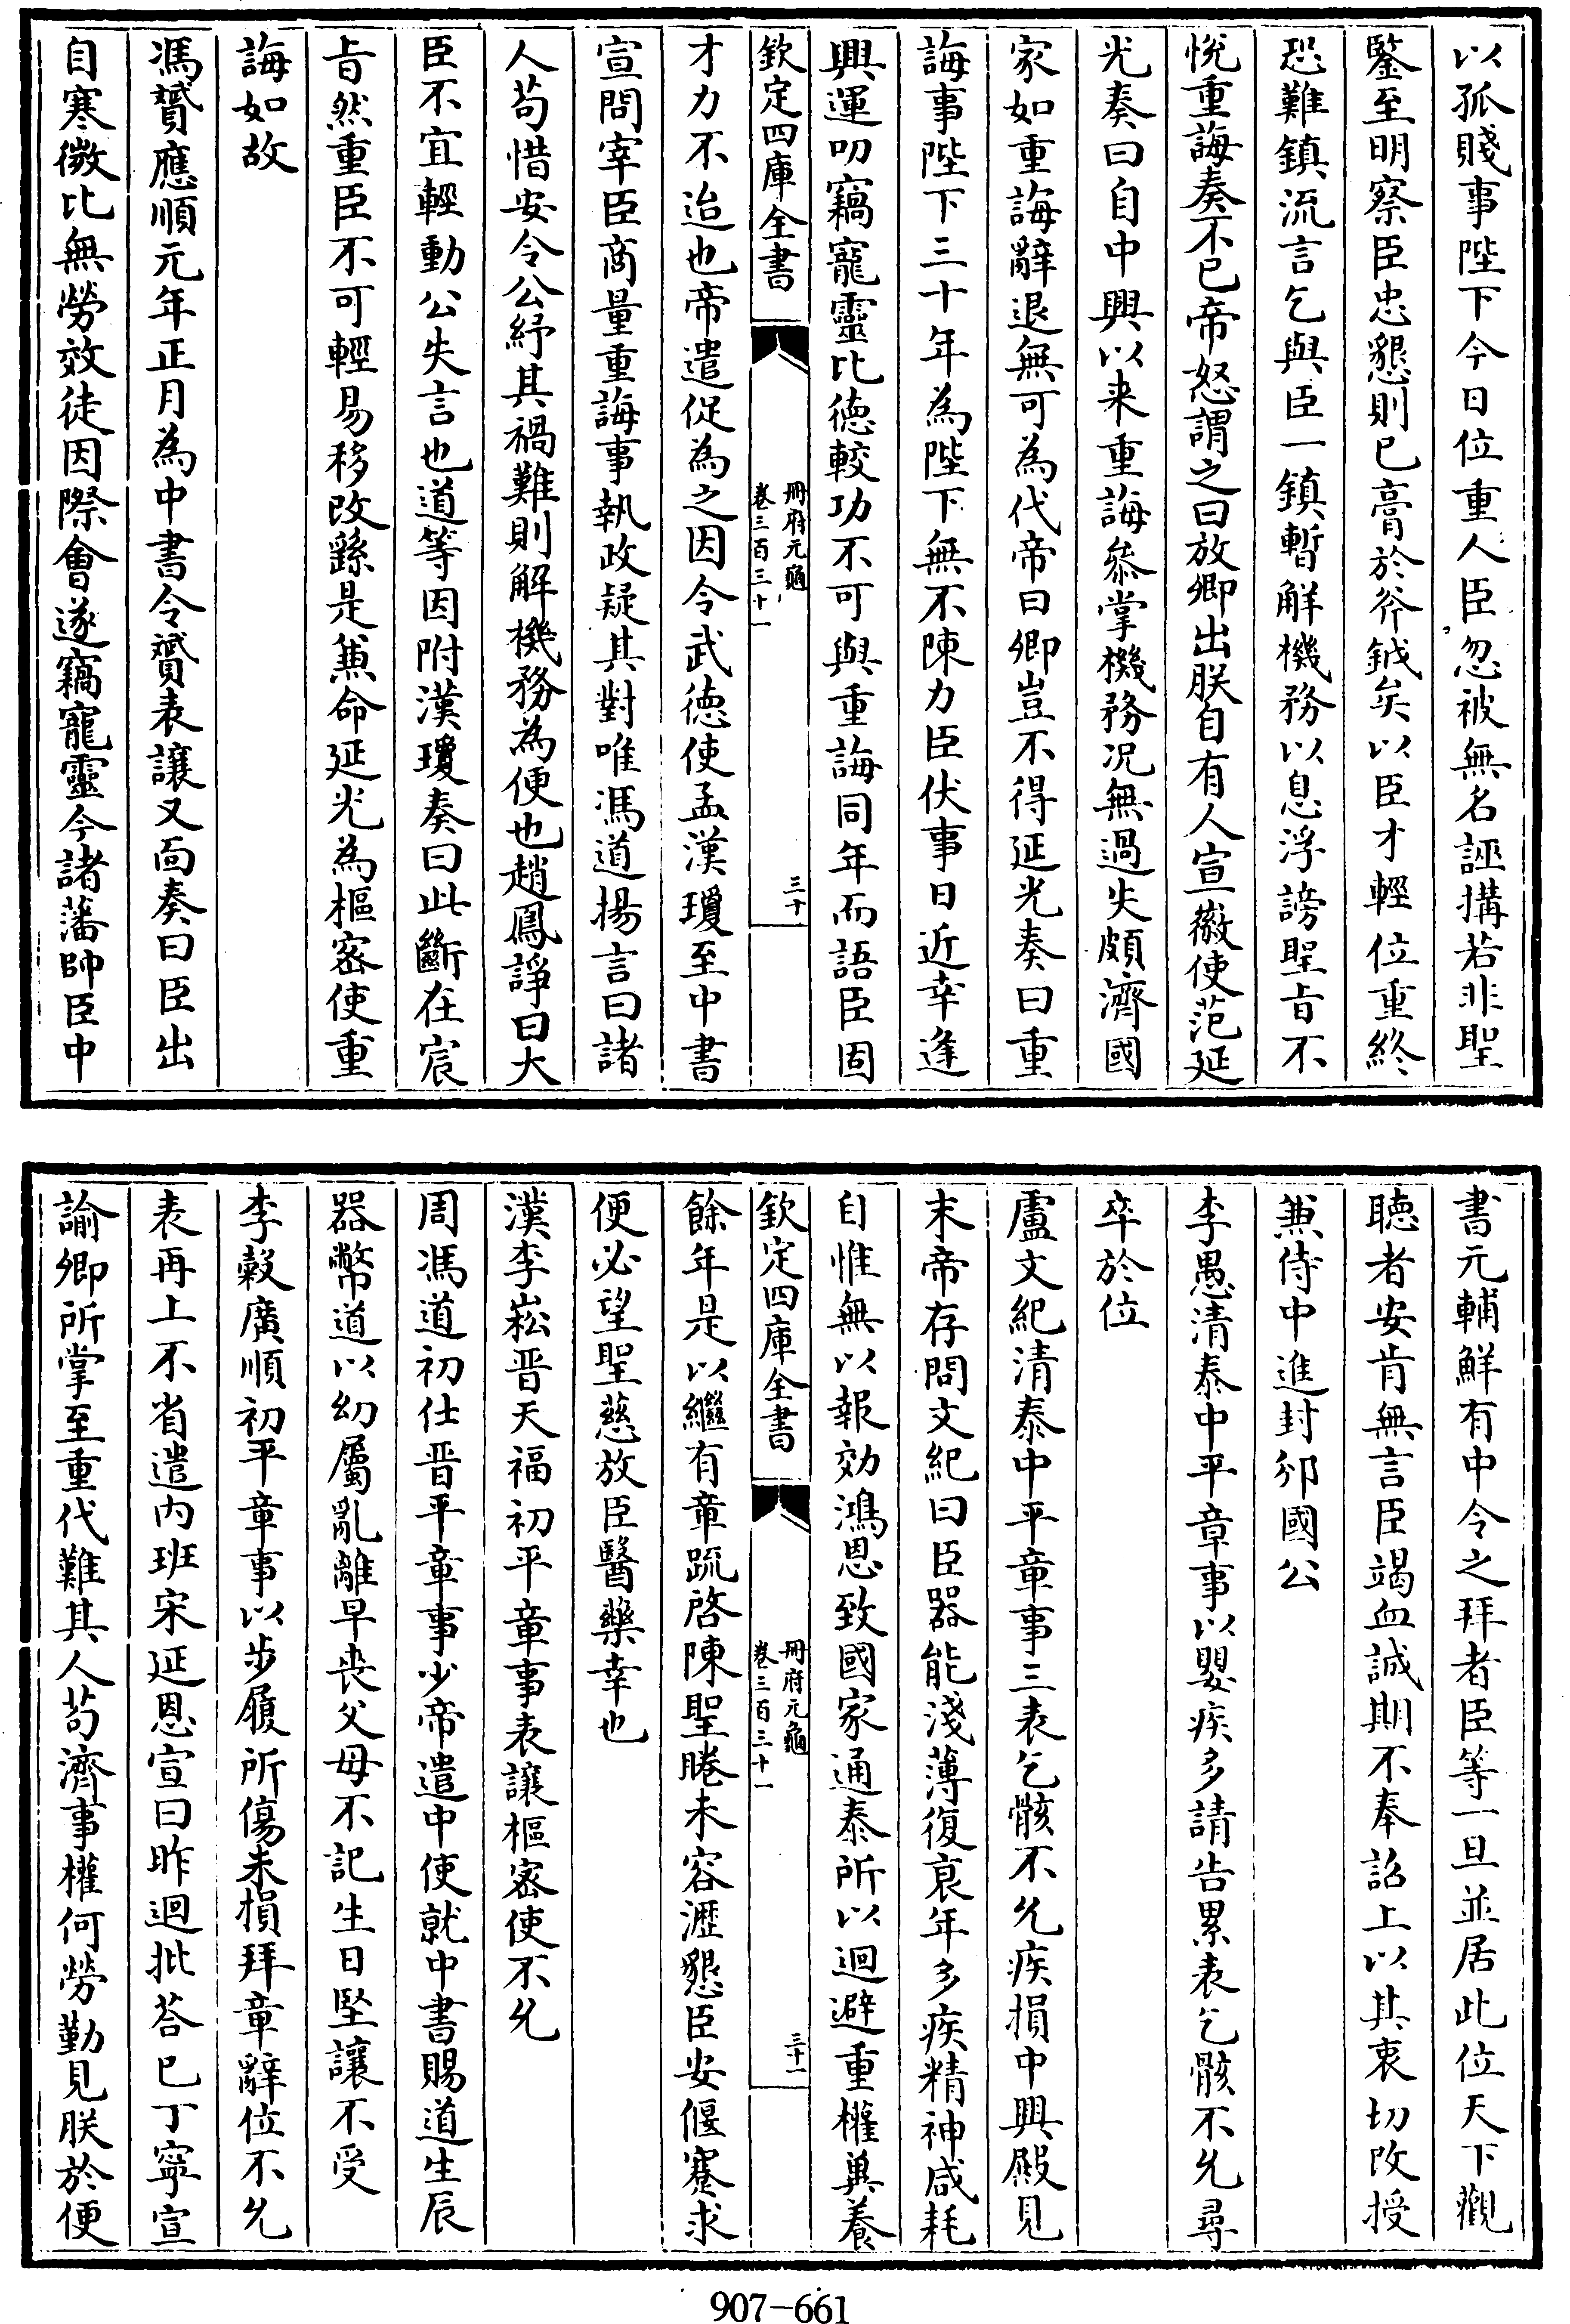 以孤賤事陛下今日位重人臣忽被無名誣搆若非聖
鑒至明察臣忠懇則已膏於斧鉞矣以臣才輕位重終
恐難鎮流言乞與臣一鎮暫解機務以息浮謗聖㫖不
悅重誨奏不已帝怒謂之曰放卿出朕自有人宣徽使范延
光奏曰自中興以來重誨叅掌機務况無過失頗濟國
家如重誨辭退無可為代帝曰卿豈不得延光奏曰重
誨事陛下三十年為陛下無不陳力臣伏事日近幸逢
興運叨竊寵靈比徳較功不可與重誨同年而語臣固
欽定四庫全書
冊府元龜
卷三百三十一
三十
才力不迨也帝遣促為之因令武徳使孟漢瓊至中書
宣問宰臣商量重誨事執政疑其對唯馮道揚言曰諸
人茍惜安令公紓其禍難則解機務為便也趙鳳諍曰大
臣不宜輕動公失言也道等因附漢瓊奏曰此斷在宸
㫖然重臣不可輕易移改繇是兼命延光為樞密使重
誨如故
馮贇應順元年正月為中書令贇表讓又面奏曰臣出
自寒微比無勞效徒因際會遂竊寵靈今諸藩帥臣中
書元輔鮮有中令之拜者臣等一旦並居此位天下觀
聴者安肯無言臣竭血誠期不奉詔上以其衷切改授
兼侍中進封邠國公
李愚清泰中平章事以嬰疾多請告累表乞骸不允尋
卒於位
盧文紀清泰中平章事三表乞骸不允疾損中興殿見
末帝存問文紀曰臣器能淺薄復衰年多疾精神咸耗
自惟無以報効鴻恩致國家通泰所以迴避重權兾養
欽定四庫全書
冊府元龜
卷三百三十一
三十一
餘年是以繼有章疏啓陳聖睠未容瀝懇臣安偃蹇求
便必望聖慈放臣醫藥幸也
漢李崧晉天福初平章事表讓樞密使不允
周馮道初仕晉平章事少帝遣中使就中書賜道生辰
器幣道以幼屬亂離早喪父母不記生日堅讓不受
李穀廣順初平章事以步履所傷未損拜章辭位不允
表再上不省遣内班宋延恩宣曰昨迴批答已丁寧宣
諭卿所掌至重代難其人茍濟事權何勞勤見朕於便
907-661